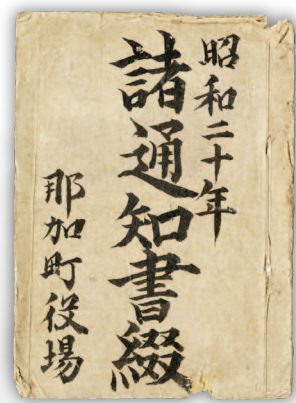 昭和二十年
諸通知書綴
那加町役場